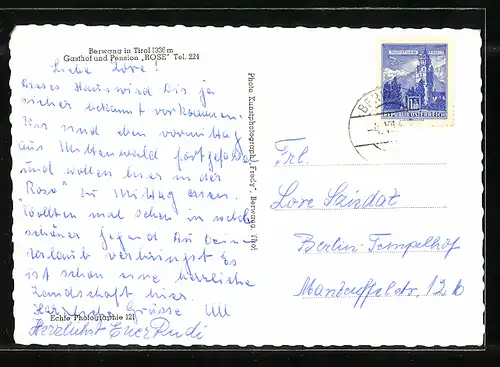 Berwang in Tirol 1336 m
Gasthof und Pension „ROSE" Tel. 224
Liebe Lore!
Dieses Haus wird Dir ja
sicher bekannt vorkommen.
Wir sind den Vormittag
aus Mittenwald fortgefahren
und wollen hier in der
Rose" zu Mittag essen.
Wollten mal sehen in welch
schöner Gegend Du Deinen
Urlaub verbringst Es
ist schon eine herrliche
Landschaft hier.
Herzliche Grüsse
Herzlichst Euer Rudi
Echte Photographie 121
Photo Kunstphotograph „Fredy", Berwang, Tirol
REPUBLIK ÖSTERREICH
BER
Frl.
Lore Szisdat
Berlin-Tempelhof
Manteuffelstr. 12b